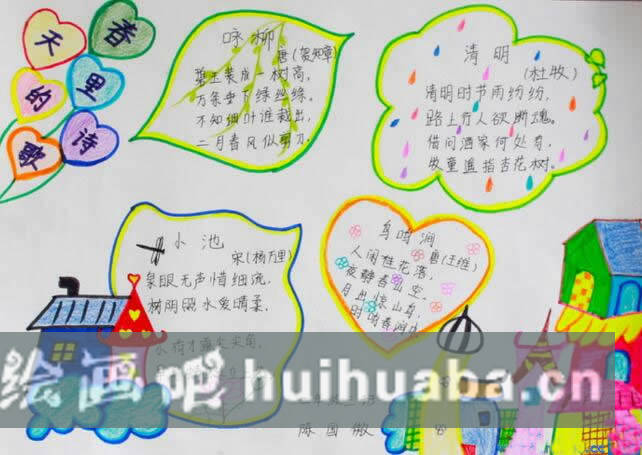 春天
里的
诗歌
咏柳
唐(贺知章)
碧玉装成一树高,
万条垂下绿丝绦。
不知细叶谁裁出,
二月春风似剪刀。
清明
(杜牧)
清明时节雨纷纷,
路上行人欲断魂。
借问酒家何处有,
牧童遥指杏花树。
小池
宋(杨万里)
泉眼无声惜细流,
树阴照水爱晴柔,
小荷才露尖尖角,
鸟鸣涧
唐(王维)
人闲桂花落,
夜静春山空,
月出惊山鸟,
时鸣春涧
陈国
绘画吧 huihuaba.cn